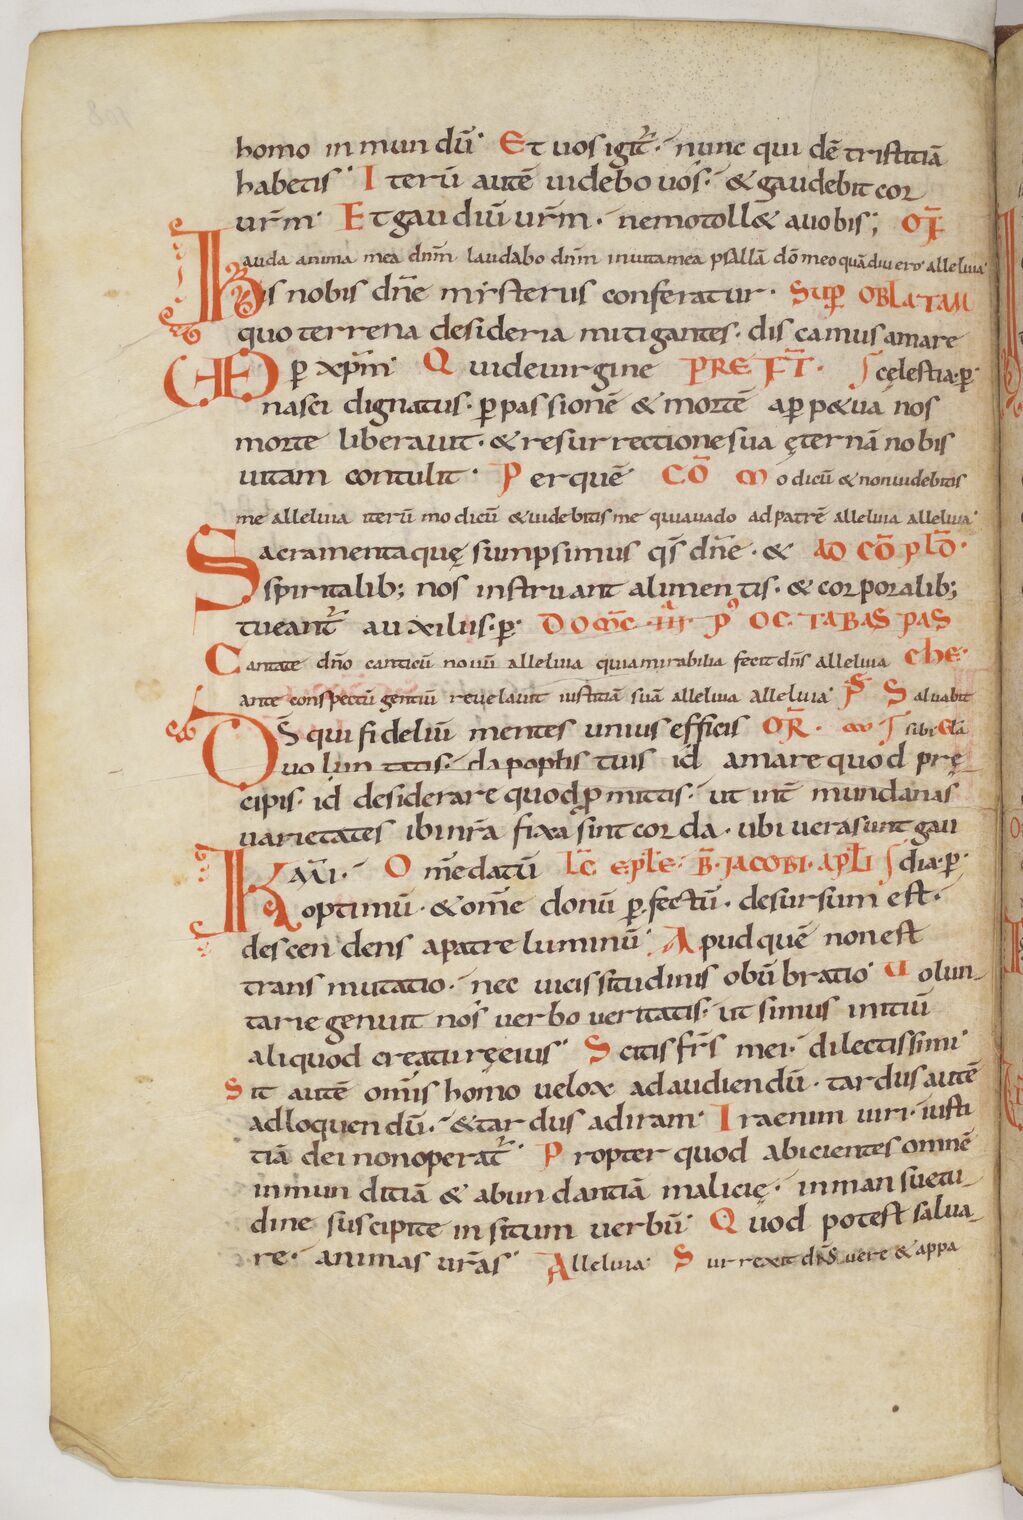 homo inmundū. Et uos igit̄. nunc quidē tristitiā
habetis. Iterū autē uidebo uos. & gaudebit cor
ur̄m. Et gaudiū ur̄m. nemo toll& a uobis; OF̄
Lauda anima mea dn̄m laudabo dn̄m in uita mea psallā dō meo quādiu ero alleluia
His nobis dn̄e mysteriis conferatur. SUP̄ OBLATAM
quo terrena desideria mitigantes. discamus amare
ꝑ xp̄m. Qui de uirgine PREFT̄. cęlestia. ꝑ
nasci dignatus. ꝑ passionē & mortē a ꝑp&ua nos
morte liberauit. & resurrectione sua ęternā nobis
uitam contulit. Per quē CŌ Modicū & non uidebitis
me alleluia iterū modicū & uidebitis me quia uado ad patrē alleluia alleluia
Sacramenta quę sumpsimus qs̄ dn̄e. & AD CŌPLŌ.
spiritalib; nos instruant alimentis. & corporalib;
tueant̄ auxiliis. ꝑ. DOM̄C III PꝰOCTABAS PAS
Cantate dn̄o canticū nouū alleluia quia mirabilia fecit dn̄s alleluia CHE.
ante conspectū gentiū reuelauit iustitiā suā alleluia alleluia. PS Saluabit
DS̄ qui fideliū mentes unius efficis OR̄. sibi
uoluntatis. da popl̄is tuis id amare quod prę
cipis. id desiderare quod ꝓmittis. ut int̄ mundanas
uarietates ibi nr̄a fixa sint corda. ubi uera sunt gau
KAM̄I. Om̄e datū LC̄ EPL̄E. B̄. JACOBI. APL̄I dia. ꝑ.
optimū. & om̄e donū ꝑfectū. desursum est.
descendens a patre luminū. Apud quē non est
transmutatio. nec uicissitudinis obūbratio. Uolun-
tarie genuit nos uerbo ueritatis. ut simus initiū
aliquod creaturę eius. Scitis fr̄s mei. dilectissimi.
Sit autē om̄is homo uelox ad audiendū. tardus autē
ad loquendū. & tardus ad iram. Ira enim uiri. iusti
tiā dei non operat̄. Propter quod abicientes omnē
inmunditiā & abundantiā malicię. in mansuetu-
dine suscipite insitum uerbū. Quod potest salua-
re. animas ur̄as. Alleluia. Surrexit dn̄s uere & appa